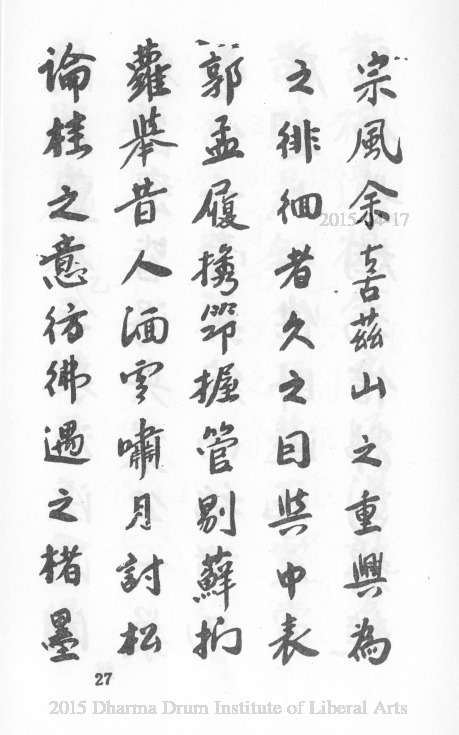 宗風余喜茲山之重興為
之徘徊者久之因與中表
郭孟履攜筇握管剔蘚捫
蘿舉昔人湎雪嘯月討松
論桂之意彷彿遇之楮墨
27
2015 Dharma Drum Institute of Liberal Arts